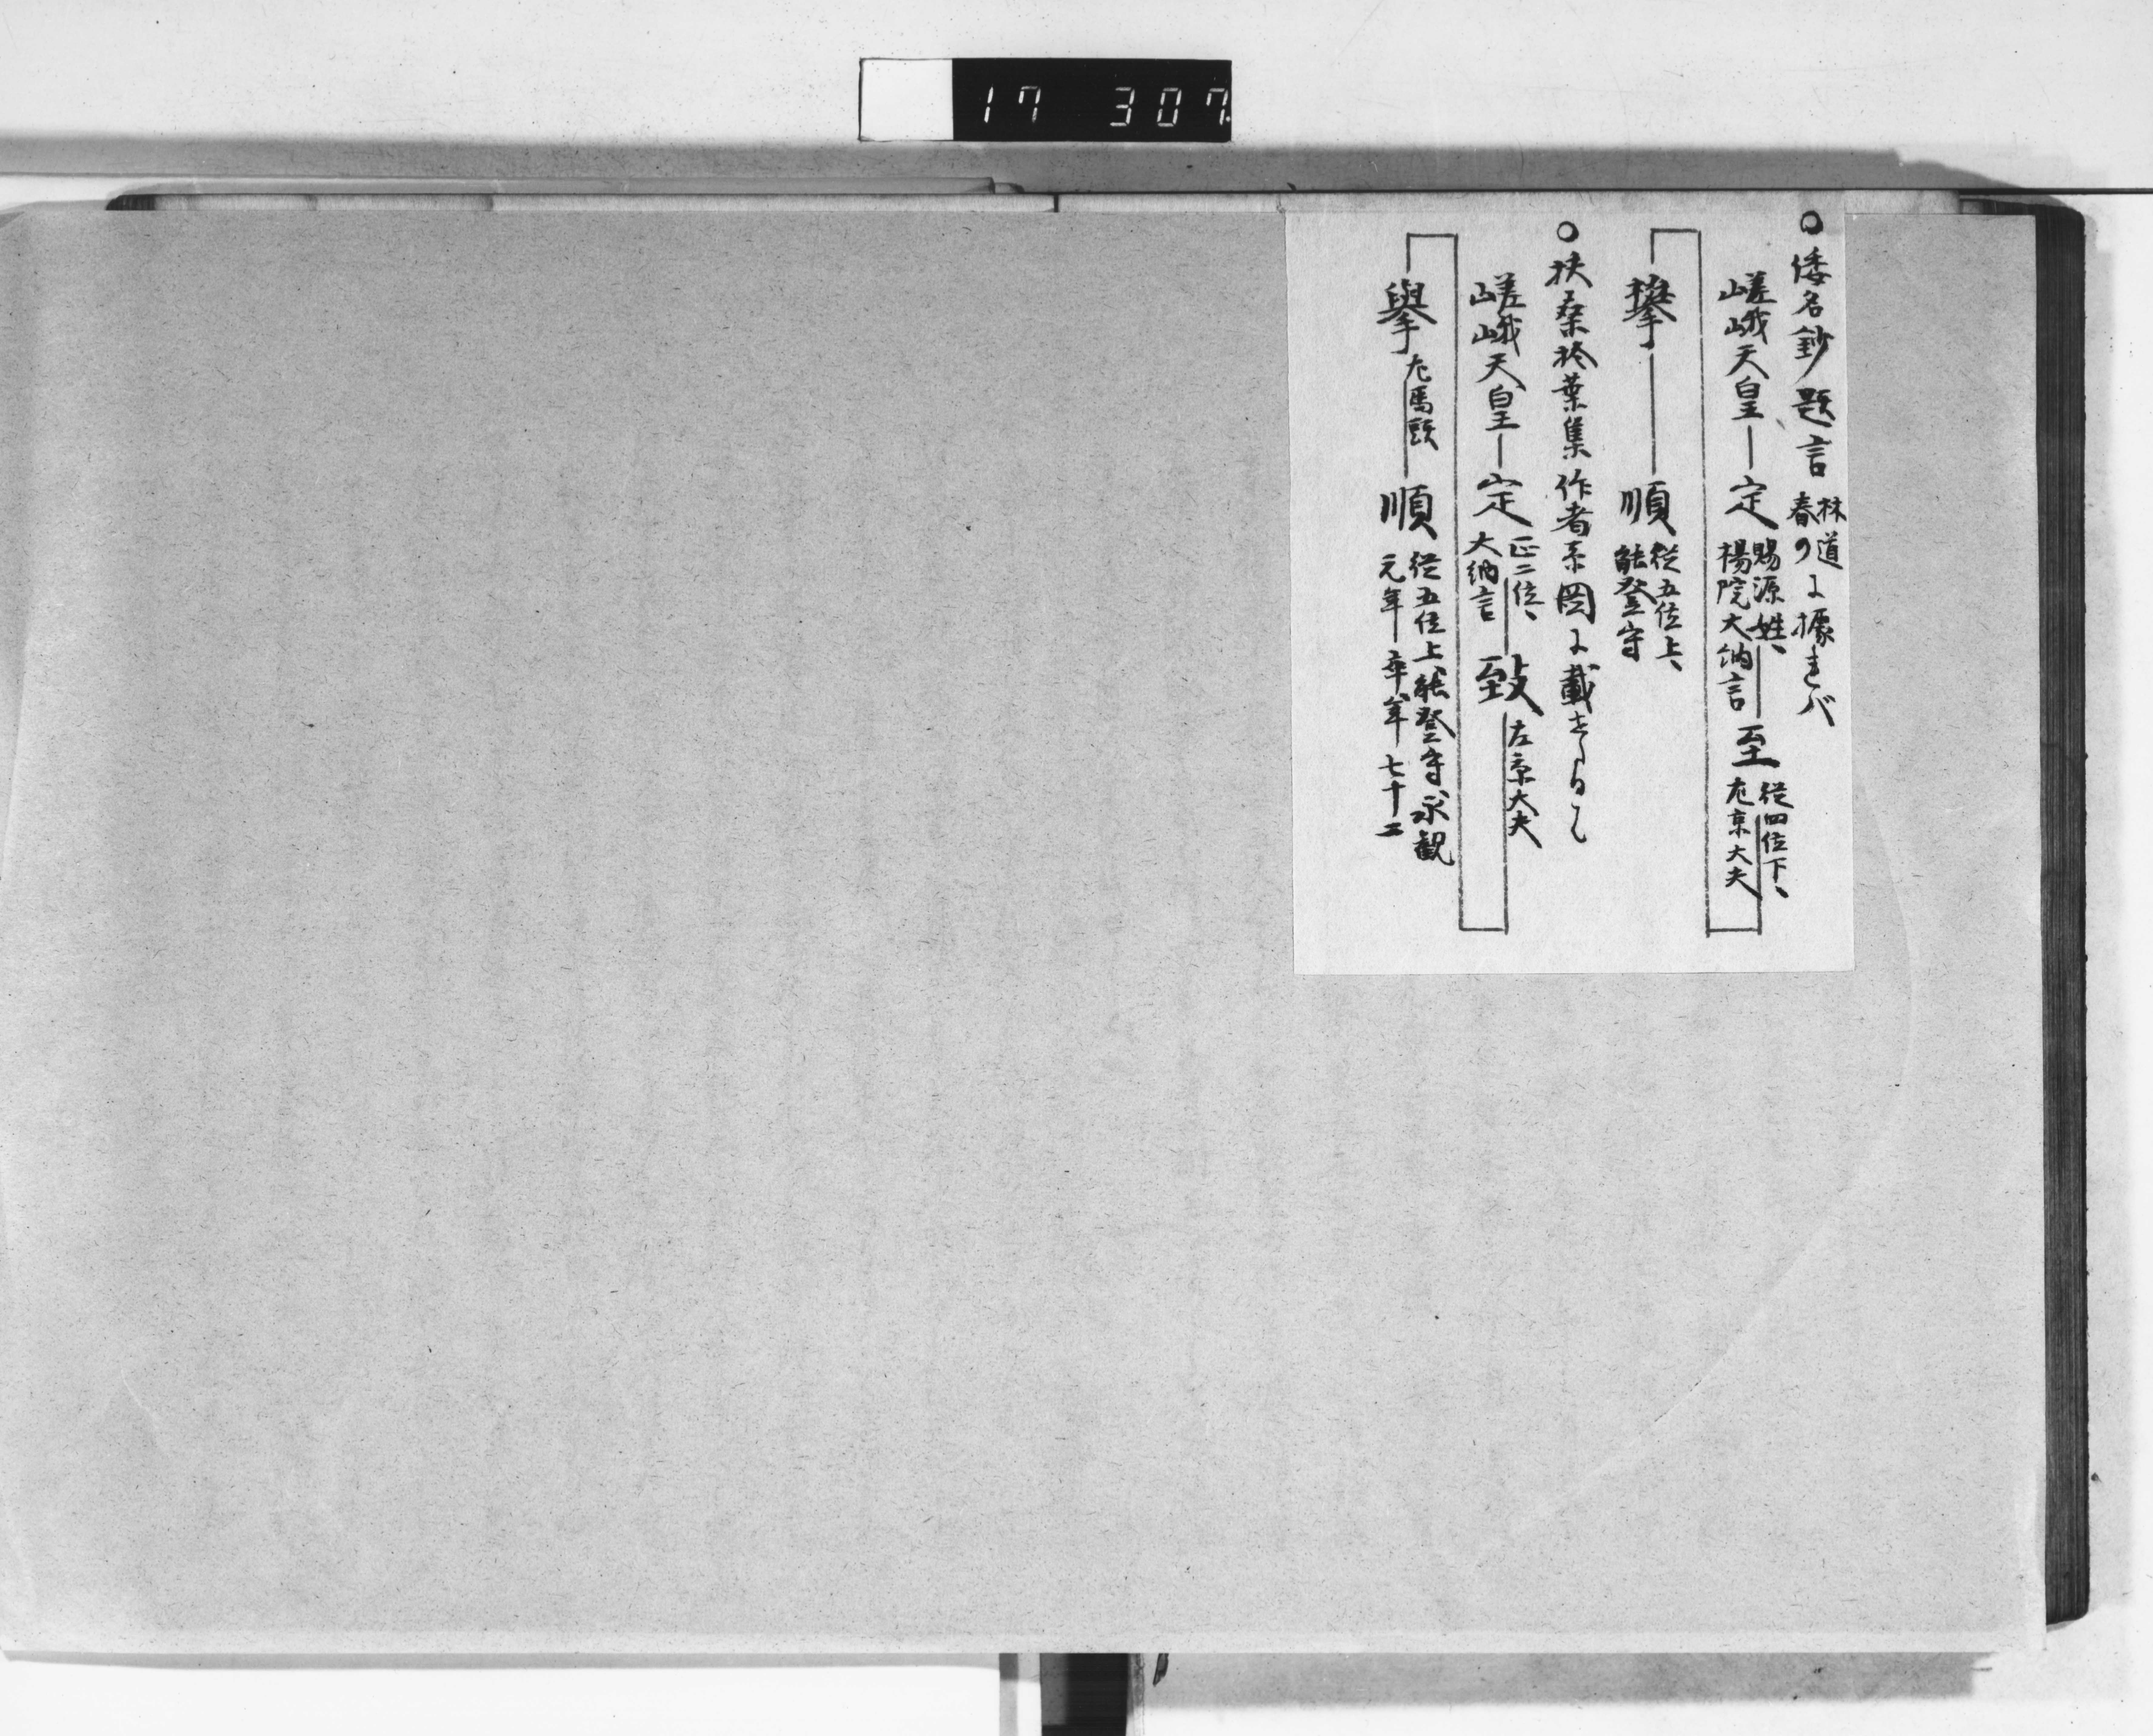 17 307
○倭名鈔題言林道春の に據れバ
嵯峨天皇―定 賜源姓、楊院大納言―至 従四位下、右京大夫
攀―順 従五位上、能登守
○扶桑拾葉集作者系図に載
嵯峨天皇―定 正二位、大納言―致 左京大夫
擧 左馬頭―順 従五位上、能登守永観元年卒年七十二